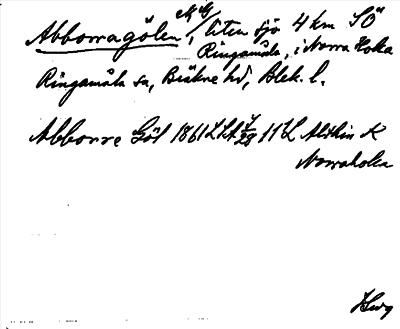 Abborragölen, liten sjö 4 km SÖ
Ringamåla, i Norra Hoka
Ringamåla sn, Bräkne hd, Blek. l.
Abborre Göl 1861 LSA 11 L
Norrahoka
Hwg